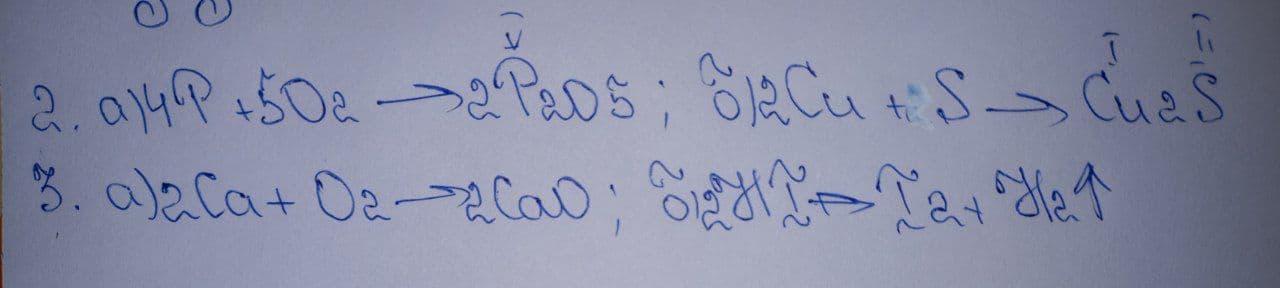 2. а) 4P + 5O2 → 2P2O5; б) 2Cu + S → Cu2S
3. а) 2Ca + O2 → 2CaO; б) 2HI → I2 + H2↑